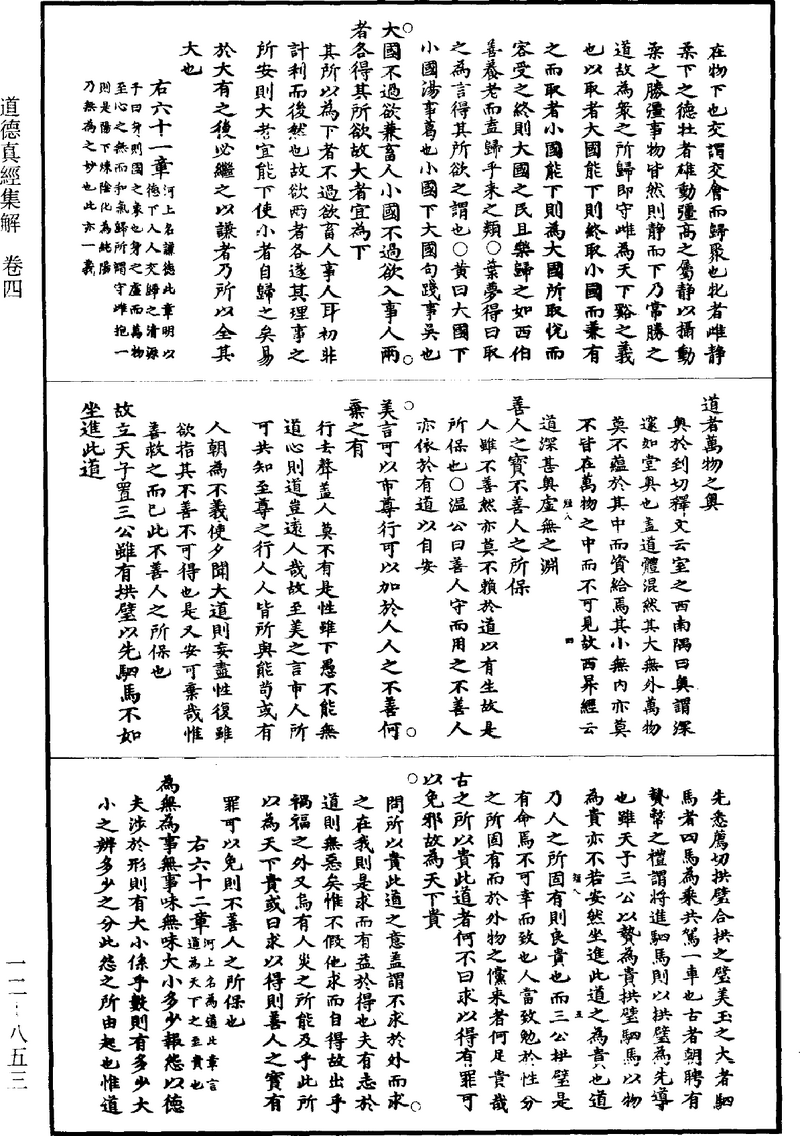 在物下也交謂交會而歸聚也牝者雌静
柔下之德牡者雄動彊髙之屬静以攝動
柔之勝彊事物皆然則静而下乃常勝之
道故為衆之所歸即守雌為天下谿之義
也以取者大國能下則終取小國而兼有
之而取者小國能下則為大國所取恱而
容受之終則大國之民且樂歸之如西伯
善養老而盍歸乎来之類○葉夢得曰取
之為言得其所欲之謂也○黄曰大國下
小國湯事葛也小國下大國句踐事吳也
大國不過欲兼畜人小國不過欲入事人兩
者各得其所欲故大者宜為下
其所以為下者不過欲畜人事人耳初非
計利而後然也故欲两者各遂其理事之
所安則大者宜能下使小者自歸之矣易
於大有之後必繼之以謙者乃所以全其
大也
右六十一章河上名謙德此章明以
德下人人交歸之清源
子曰身則國之象也身之虚而萬物
至心之無而和氣歸所謂守雌抱一
則是陽下煉陰化為純陽
乃無為之妙也此亦一義
道者萬物之奥
奥於到切釋文云室之西南隅曰奥謂深
邃如堂奥也盖道體混然其大無外萬物
莫不藴於其中而資給焉其小無内亦莫
不皆在萬物之中而不可見故西昇經云
道深甚奥虚無之淵
善人之寳不善人之所保
人雖不善然亦莫不賴於道以有生故是
所保也○温公曰善人守而用之不善人
亦依於有道以自安
美言可以市尊行可以加於人人之不善何
棄之有
行去聲盖人莫不有是性雖下愚不能無
道心則道豈遠人哉故至美之言市人所
可共知至尊之行人人皆所與能苟或有
人朝為不義使夕聞大道則妄盡性復雖
欲指其不善不可得也是又安可棄哉惟
善救之而已此不善人之所保也
故立天子置三公雖有拱璧以先駟馬不如
坐進此道
先悉薦切拱璧合拱之璧美玉之大者駟
馬者四馬為乗共駕一車也古者朝聘有
贄幣之禮謂將進駟馬則以拱璧為先導
也雖天子三公以贄為貴拱璧駟馬以物
為貴亦不若安然坐進此道之為貴也道
乃人之所固有則良貴也而三公拱璧是
有命焉不可幸而致也人當致勉於性分
之所固有而於外物之儻来者何足貴哉
古之所以貴此道者何不曰求以得有罪可
以免邪故為天下貴
問所以貴此道之意盖謂不求於外而求
之在我則是求而有益於得也夫有志於
道則無惡矣惟不假他求而自得故出乎
禍福之外又烏有人災之所能及乎此所
以為天下貴或曰求以得則善人之寳有
罪可以免則不善人之所保也
右六十二章河上名為道此章言
道為天下之至貴也
為無為事無事味無味大小多少報怨以德
夫涉於形則有大小係乎數則有多少大
小之辨多少之分此怨之所由起也惟道
道德真經集解　卷四
一二—八五三